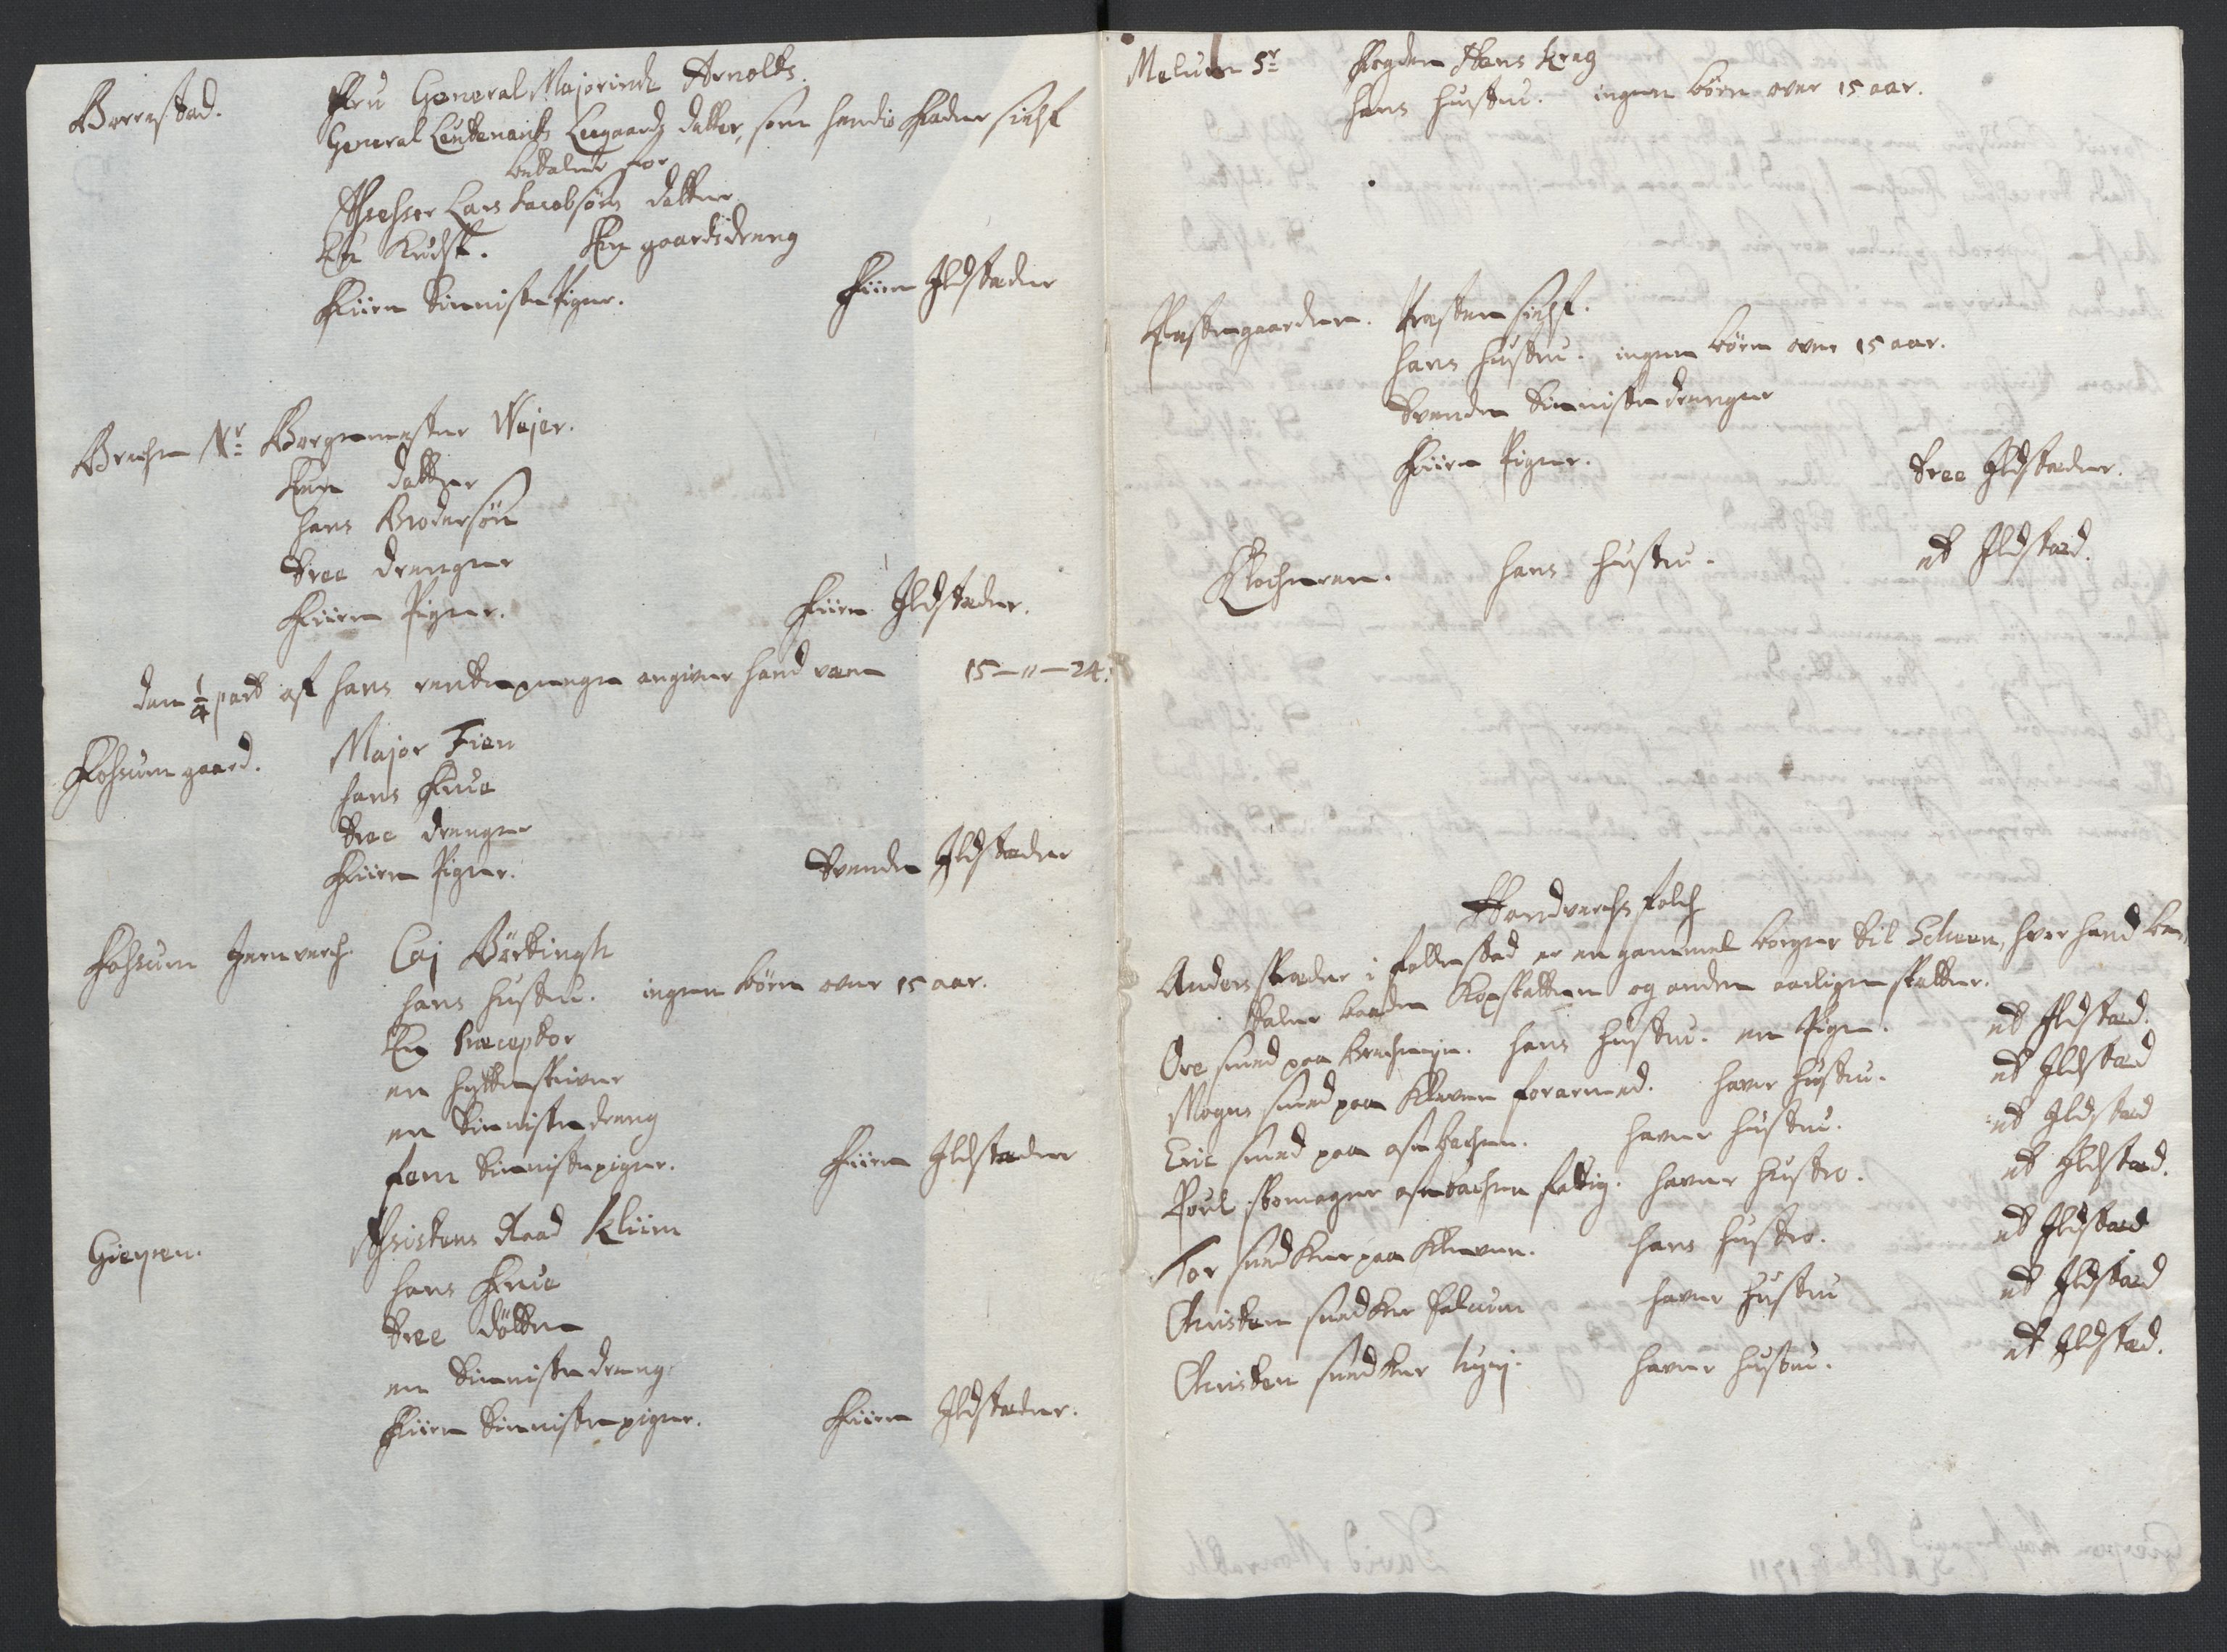 Borrestad. Fru General Majorinde Arnolts.
General Leutenants Leegaards datter, som hendis Fader sielf
betaler for
Assessor Lars Jacobsøns datter
En Kudsk. En gaardsdreng
Fiire tienniste Piger. Fiire Ildstæder
Brechen Nr Borgemester Wejer.
Een datter
hans Brodersøn
tree drenger
Fiire Piger. Fiire Ildstæder.
den 1/4 part af hans rentepenge angiver hand være 15 - " - 24:
Fossum gaard. Major Fien
hans Frue
tree drenger
Fiire Piger. Tvende Ildstæder
Fossum Jernverch. Caj Børtingh
hans hustru. ingen børn over 15 aar.
En Præceptor
en hytteskriver
en tienniste dreng
fem tienniste piger. Fiire Ildstæder
Gierpen. Assistens Raad Kliim
hans Frue
tree døttre
en tienniste dreng.
Fiire tienniste piger. Fiire Ildstæder.
Melum Sr Fogden Hans Krag
hans hustru. ingen børn over 15 aar.
Præstegaarden. Præsten sielf.
hans hustru. ingen børn over 15 aar.
tvende tienniste drenger
Fiire Piger. tree Ildstæder.
Klocheren. hans hustru. et Ildstæd.
Handverchs folch
Anders skræder i follestad er en gammel borger til Scheen, hvor hand be-
taler baade Kopskatten og anden aarligen skatter.
Ore smed paa Brechmyn. hans hustru. en Pige. et Ildstæd.
Mogns smed paa Kleven forarmed. haver hustru. et Ildstæd
Eric smed paa osebachen. haver hustru. et Ildstæd
Poul skomager osebachen fattig. haver hustro. et Ildstæd.
Tor snedker paa Kleven. hans hustro. et Ildstæd
Christen snedker haver hustru et Ildstæd
Christen snedker haver hustru. et Ildstæd.